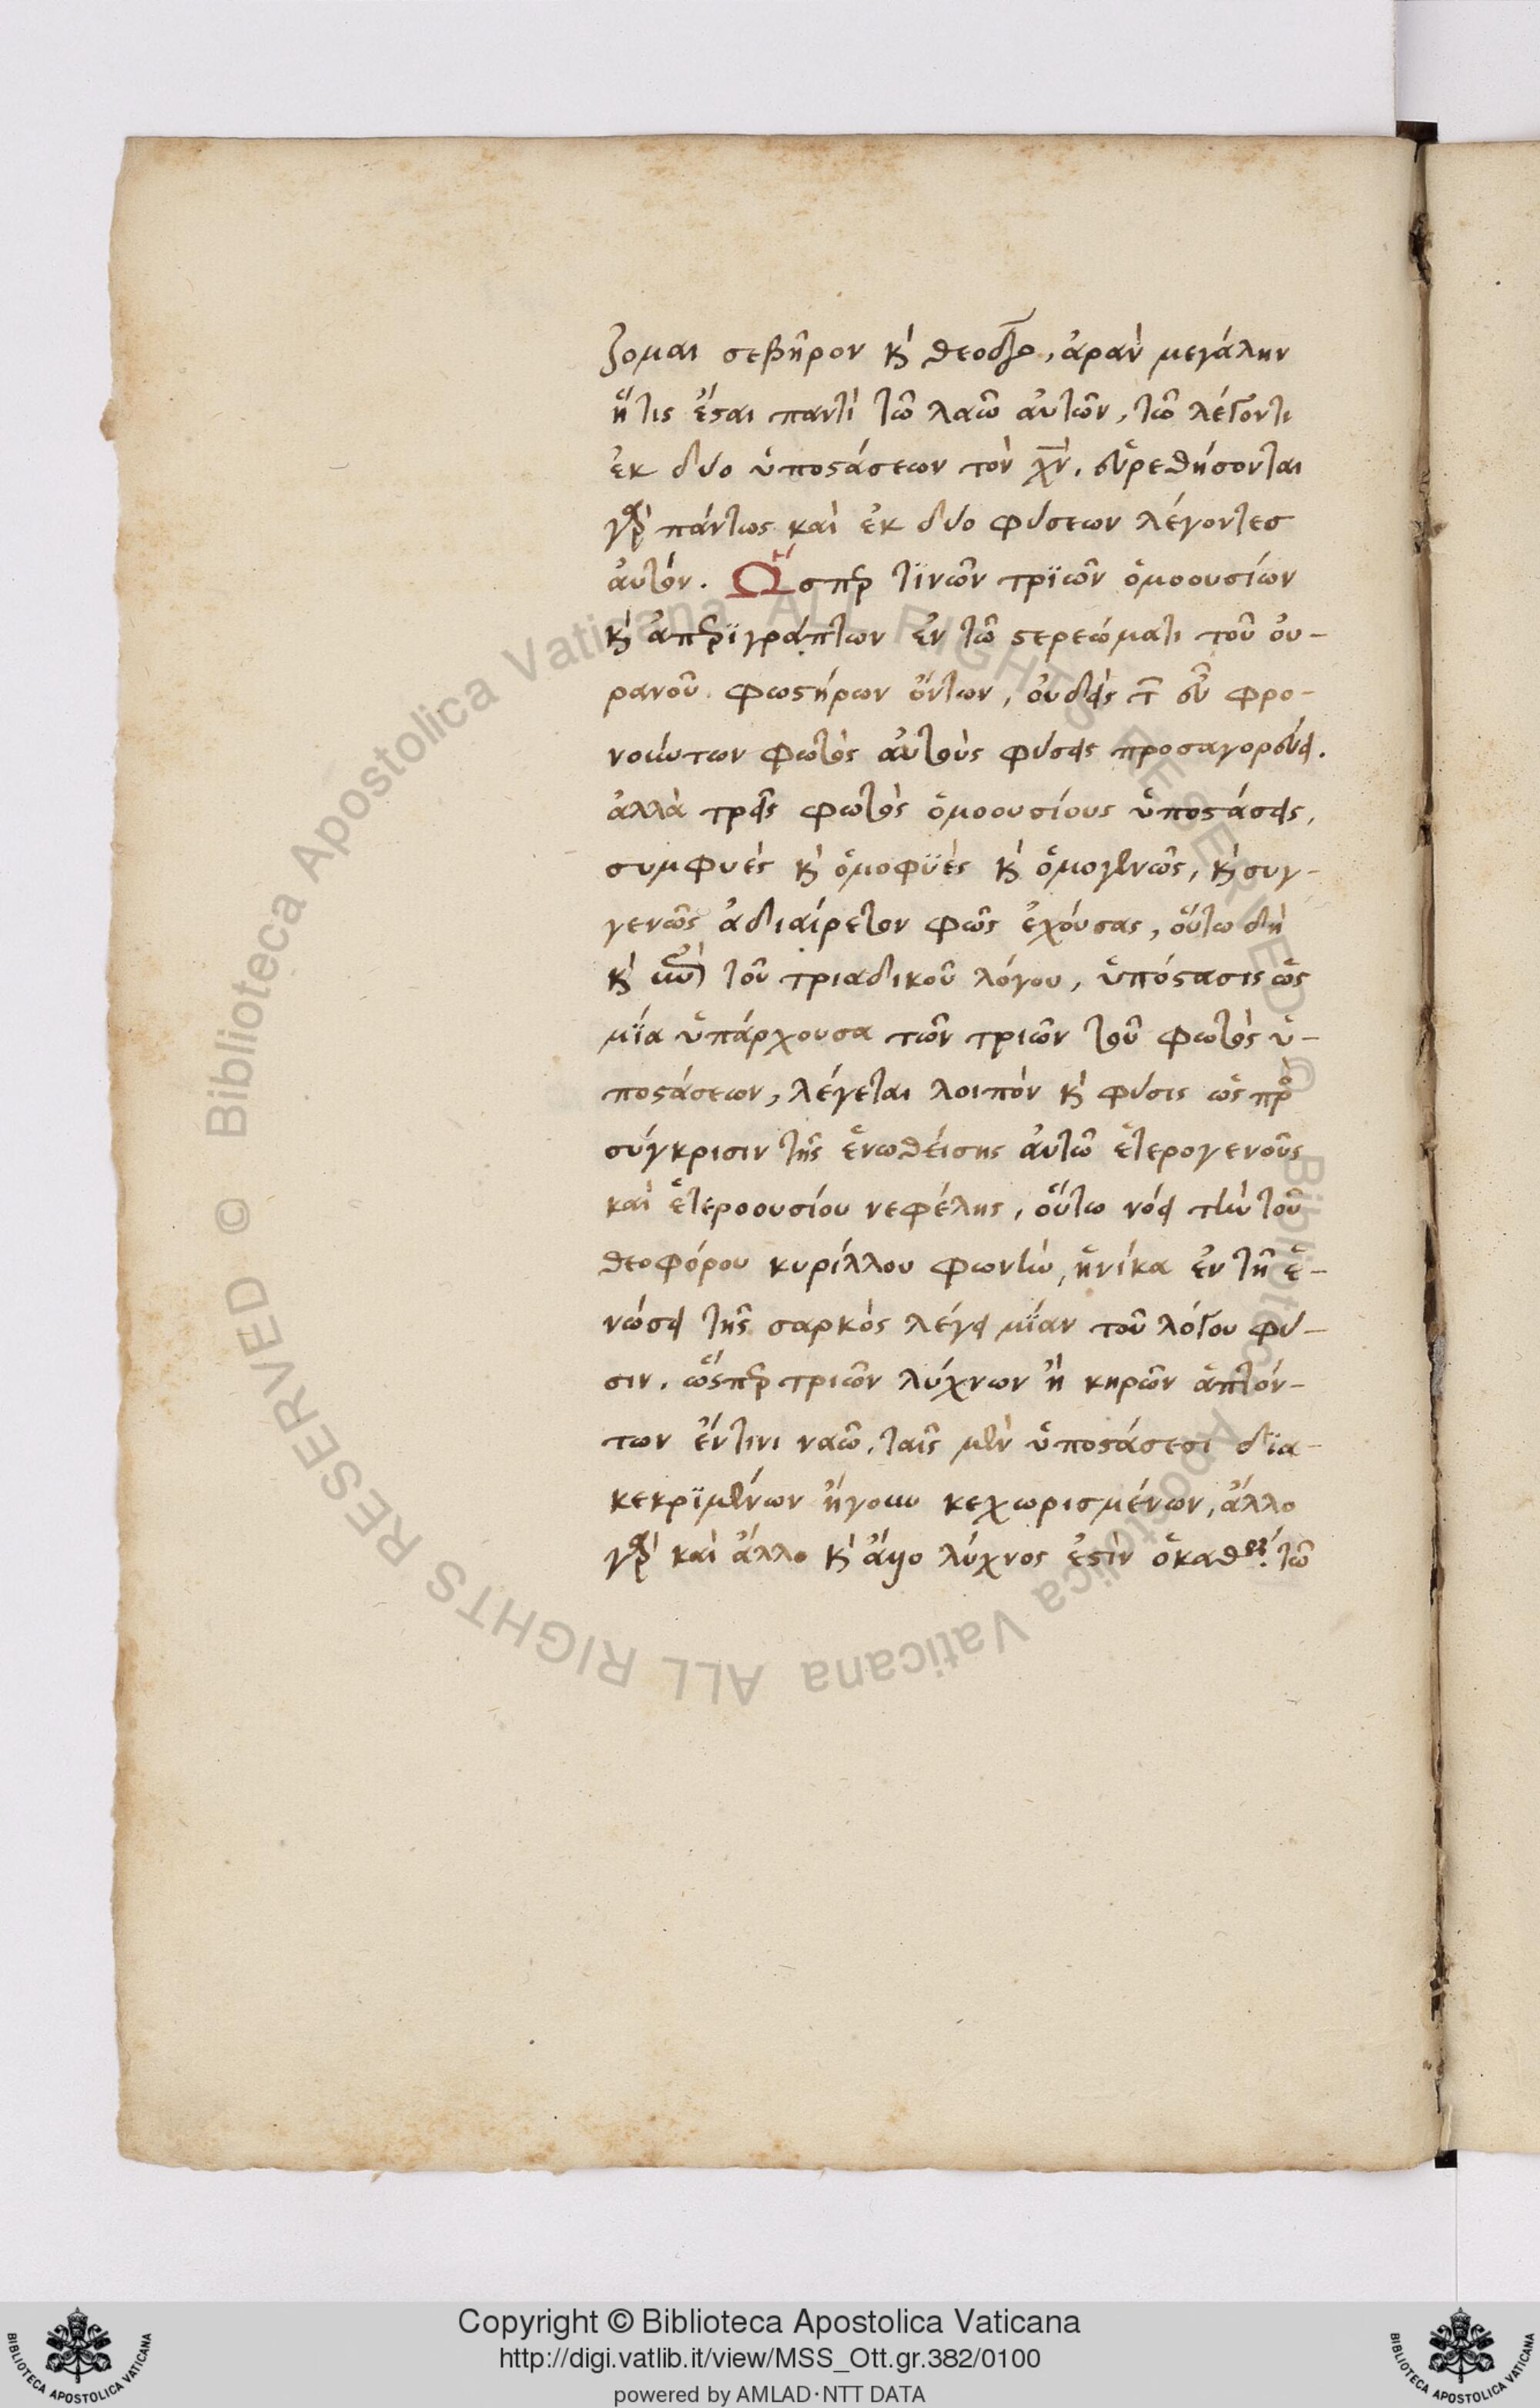 ζομαι σεβῆρον κὶ θεόδωρον, ἀρὰν μεγάλην
ἥτις ἔσται παντὶ τῶ λαῶ αὐτῶν, τῶ λέγοντι
ἐκ δύο ὑποστάσεων τὸν χν̄. εὑρεθήσονται
γὰρ πάντως καὶ ἐκ δύο φύσεων λέγοντες
αὐτόν. Ὥσπερ τϊνῶν τρϊῶν ὁμοουσίων
κὶ ἀπερϊγράπτων ἐν τῶ στερεώματι τοῦ οὐ-
ρανοῦ φωστήρων ὄντων, οὐδεὶς τῶν εὖ φρο-
νούντων φωτὸς αὐτοὺς φύσεις προσαγορεύει.
ἀλλὰ τρεῖς φωτὸς ὁμοουσίους ὑποστάσεις,
συμφυὲς κὶ ὁμοφϋὲς κὶ ὁμογενῶς, κὶ συγ-
γενῶς ἀδιαίρετον φῶς ἐχούσας, οὕτω δὴ
κὶ τοῦ τριαδικοῦ λόγου, ὑπόστασις ὡς
μϊα ὑπάρχουσα τῶν τριῶν τοῦ φωτὸς ὑ-
ποστάσεων, λέγεται λοιπὸν κὶ φύσις ὡς πρὸς
σύγκρισιν τῆς ἑνωθείσης αὐτῶ ἑτερογενοῦς
καὶ ἑτεροουσίου νεφέλης, οὕτω νόει τὴν τοῦ
θεοφόρου κυρίλλου φωνὴν, ἡνίκα ἐν τῆ ἑ-
νώσει τῆς σαρκὸς λέγει μΐαν τοῦ λόγου φύ-
σιν. ὥσπερ τριῶν λύχνων ἢ κηρῶν ἁπτόν-
των ἔν τινι ναῶ, ταῖς μὲν ὑποστάσεσι δϊα-
κεκρϊμένων ἤγουν κεχωρισμένων, ἄλλο
γὰρ καὶ ἄλλο κὶ ἄλλο λύχνος ἐστὶν ὁ καθεὶς τῶ